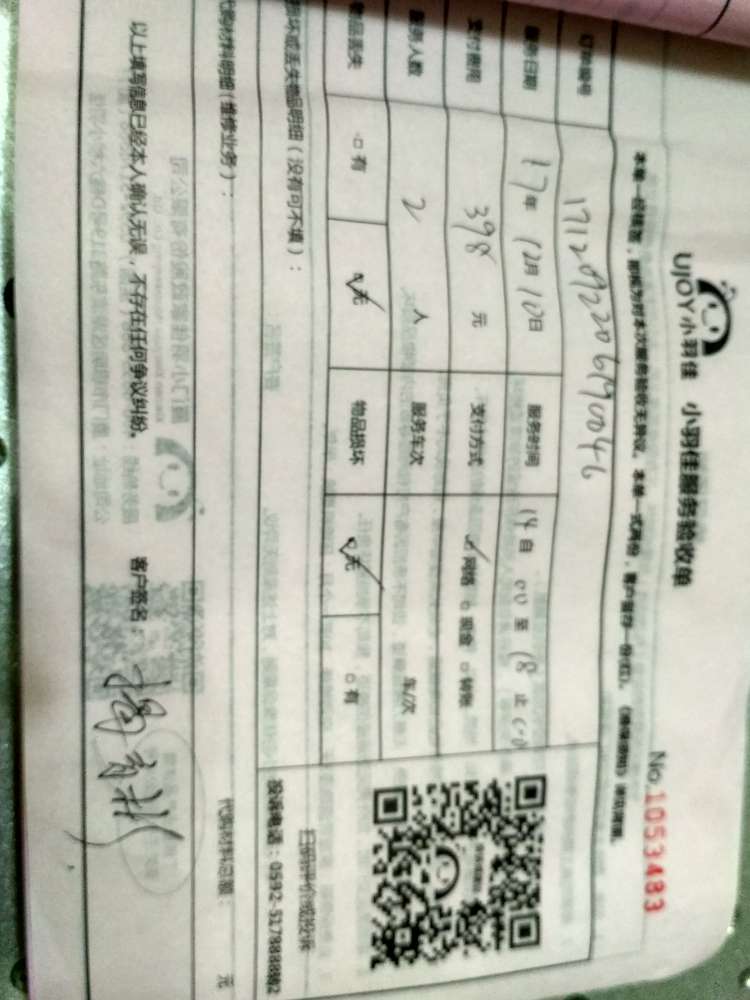 UJOY小羽佳 小羽佳服务验收单
No.1053483
本单一经签发，即视为对本次服务验收无异议。本单一式两份，客户留存一份(红)。
订单编号
服务日期 17年 12月 10日 服务时间 14自 00至 18止
支付费用 398 元 支付方式 网络 □现金 □转账
服务人数 2 人 服务车次 车/次
物品丢失 □有 ☑无 物品损坏 ☑无 □有
损坏或丢失物品明细（没有可不填）：
扫码评价或投诉
投诉电话：0592-5178888转2
代购材料明细（维修业务）：
代购材料总额： 元
以上填写信息已经本人确认无误，不存在任何争议纠纷。 客户签名：